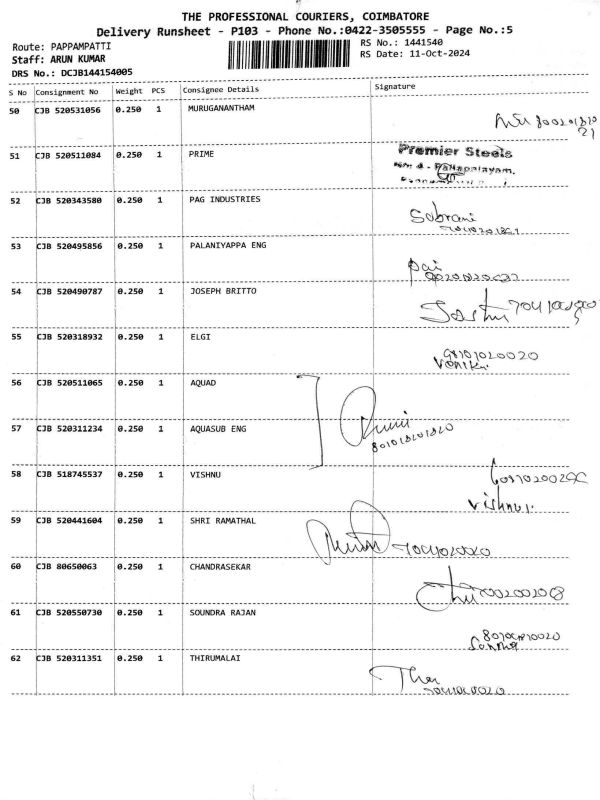 THE PROFESSIONAL COURIERS, COIMBATORE
Delivery Runsheet - P103 - Phone No.:0422-3505555 - Page No.:5
Route: PAPPAMPATTI
RS No.: 1441540
Staff: ARUN KUMAR
RS Date: 11-Oct-2024
DRS No.: DCJB144154005
S No Consignment No Weight PCS Consignee Details Signature
50 CJB 520531056 0.250 1 MURUGANANTHAM
51 CJB 520511084 0.250 1 PRIME
Premier Steels
52 CJB 520343580 0.250 1 PAG INDUSTRIES
Sabrani
53 CJB 520495856 0.250 1 PALANIYAPPA ENG
Pai
54 CJB 520490787 0.250 1 JOSEPH BRITTO
55 CJB 520318932 0.250 1 ELGI
9810102020
56 CJB 520511065 0.250 1 AQUAD
57 CJB 520311234 0.250 1 AQUASUB ENG
58 CJB 518745537 0.250 1 VISHNU
Vishnu
59 CJB 520441604 0.250 1 SHRI RAMATHAL
60 CJB 80650063 0.250 1 CHANDRASEKAR
61 CJB 520550730 0.250 1 SOUNDRA RAJAN
62 CJB 520311351 0.250 1 THIRUMALAI